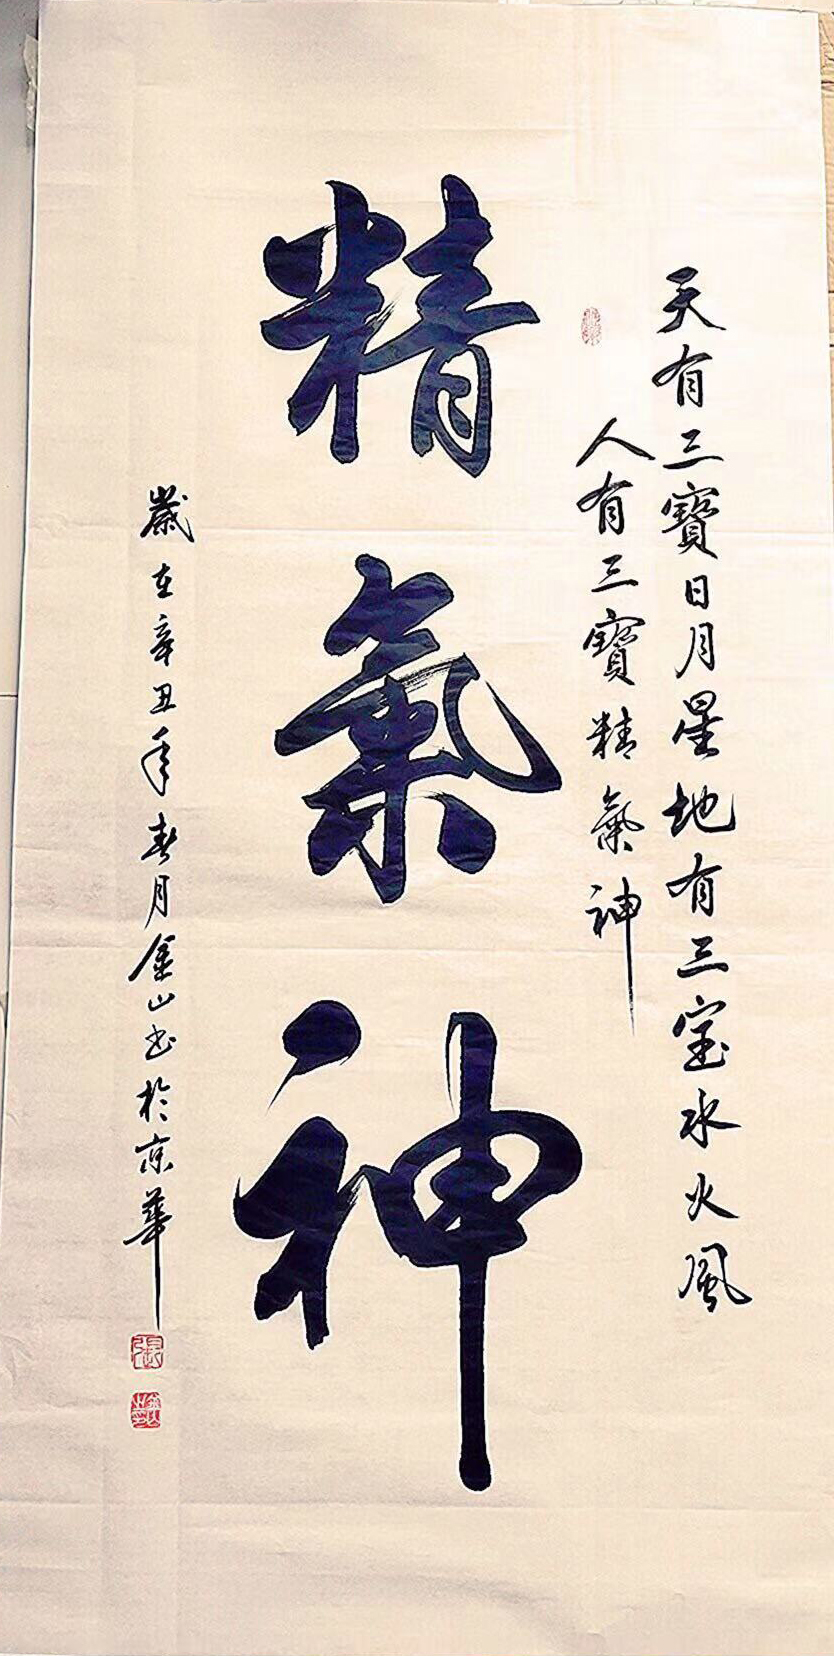 天有三寶日月星地有三宝水火風
人有三寶精氣神
精氣神
歲在辛丑年春月金山书於京華